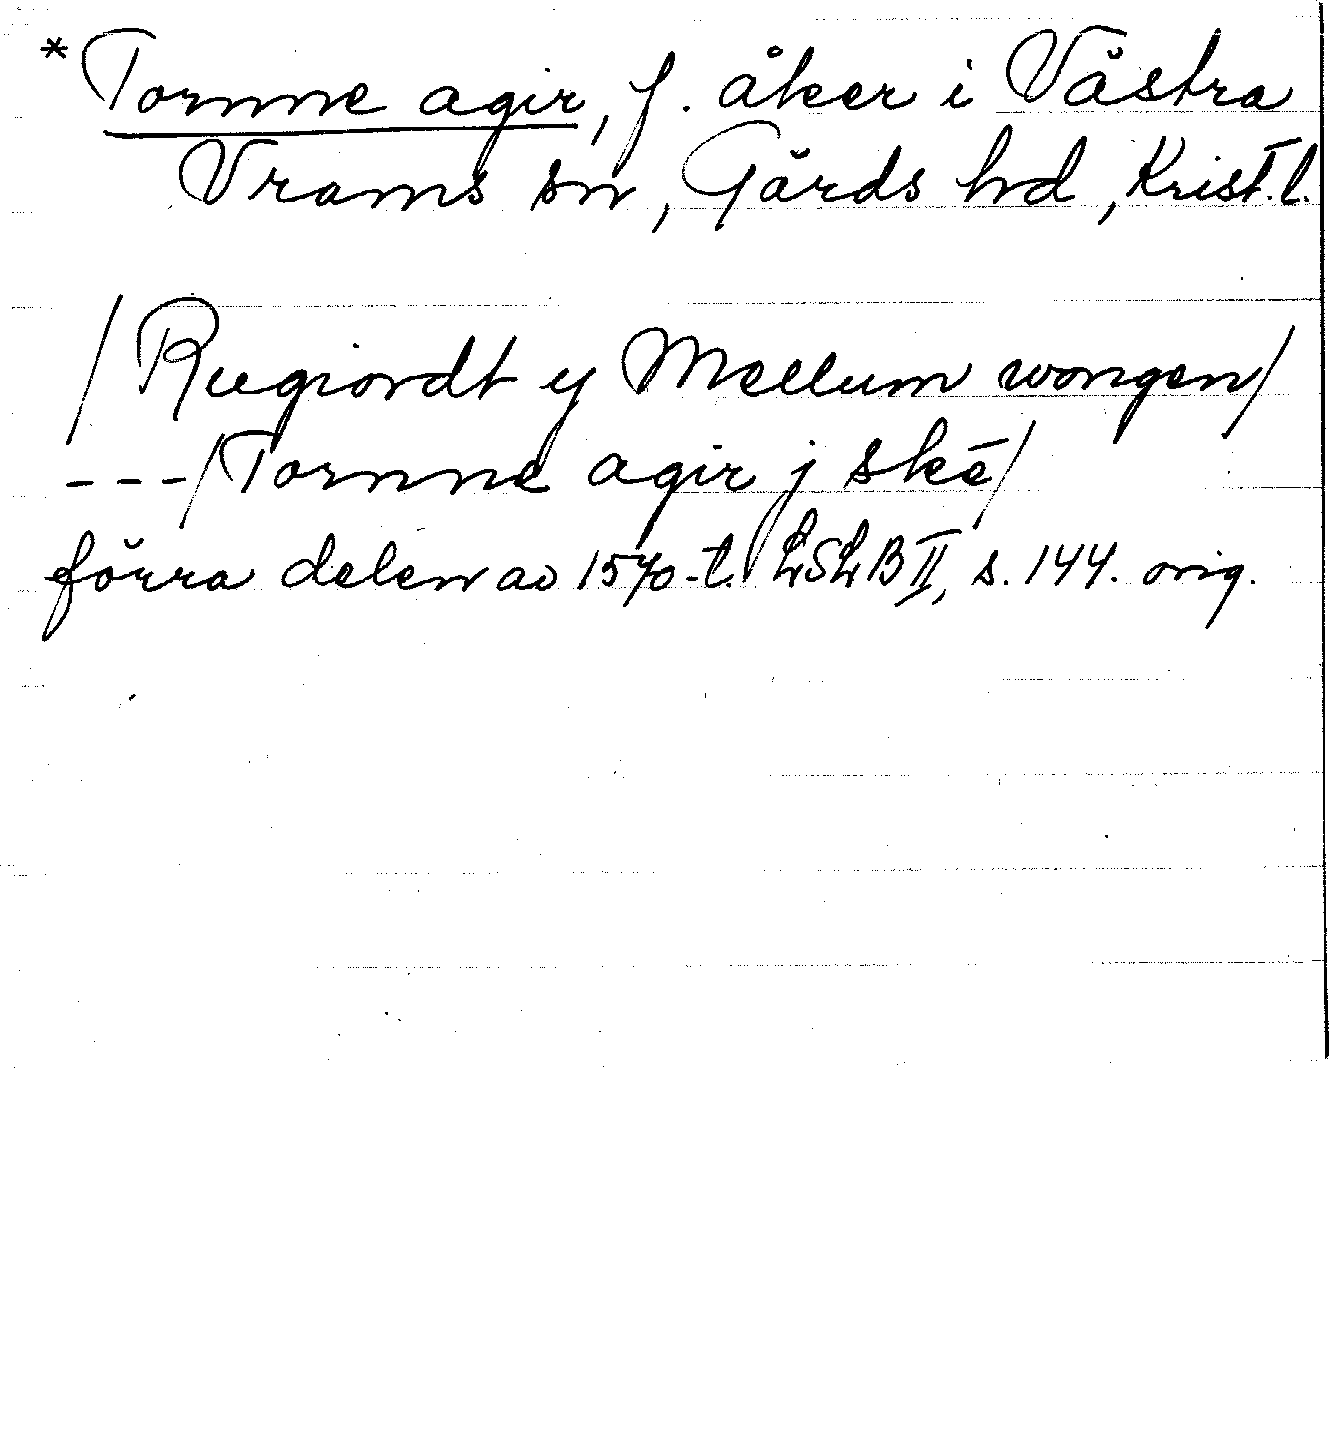 *Tornne agir, f. åker i Västra
Vrams sn, Gärds hd, Krist. l.
/Rugiordt y Mellum wongen/
---/Tornne agir j skē/
förra delen av 1570-t. LSLB II, s. 144. orig.